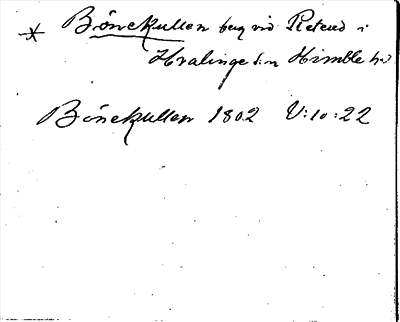 * Bönekullen berg vid Reteud i
Hvalinge s:n Himble hd
Bönekullen 1802 V:10:22